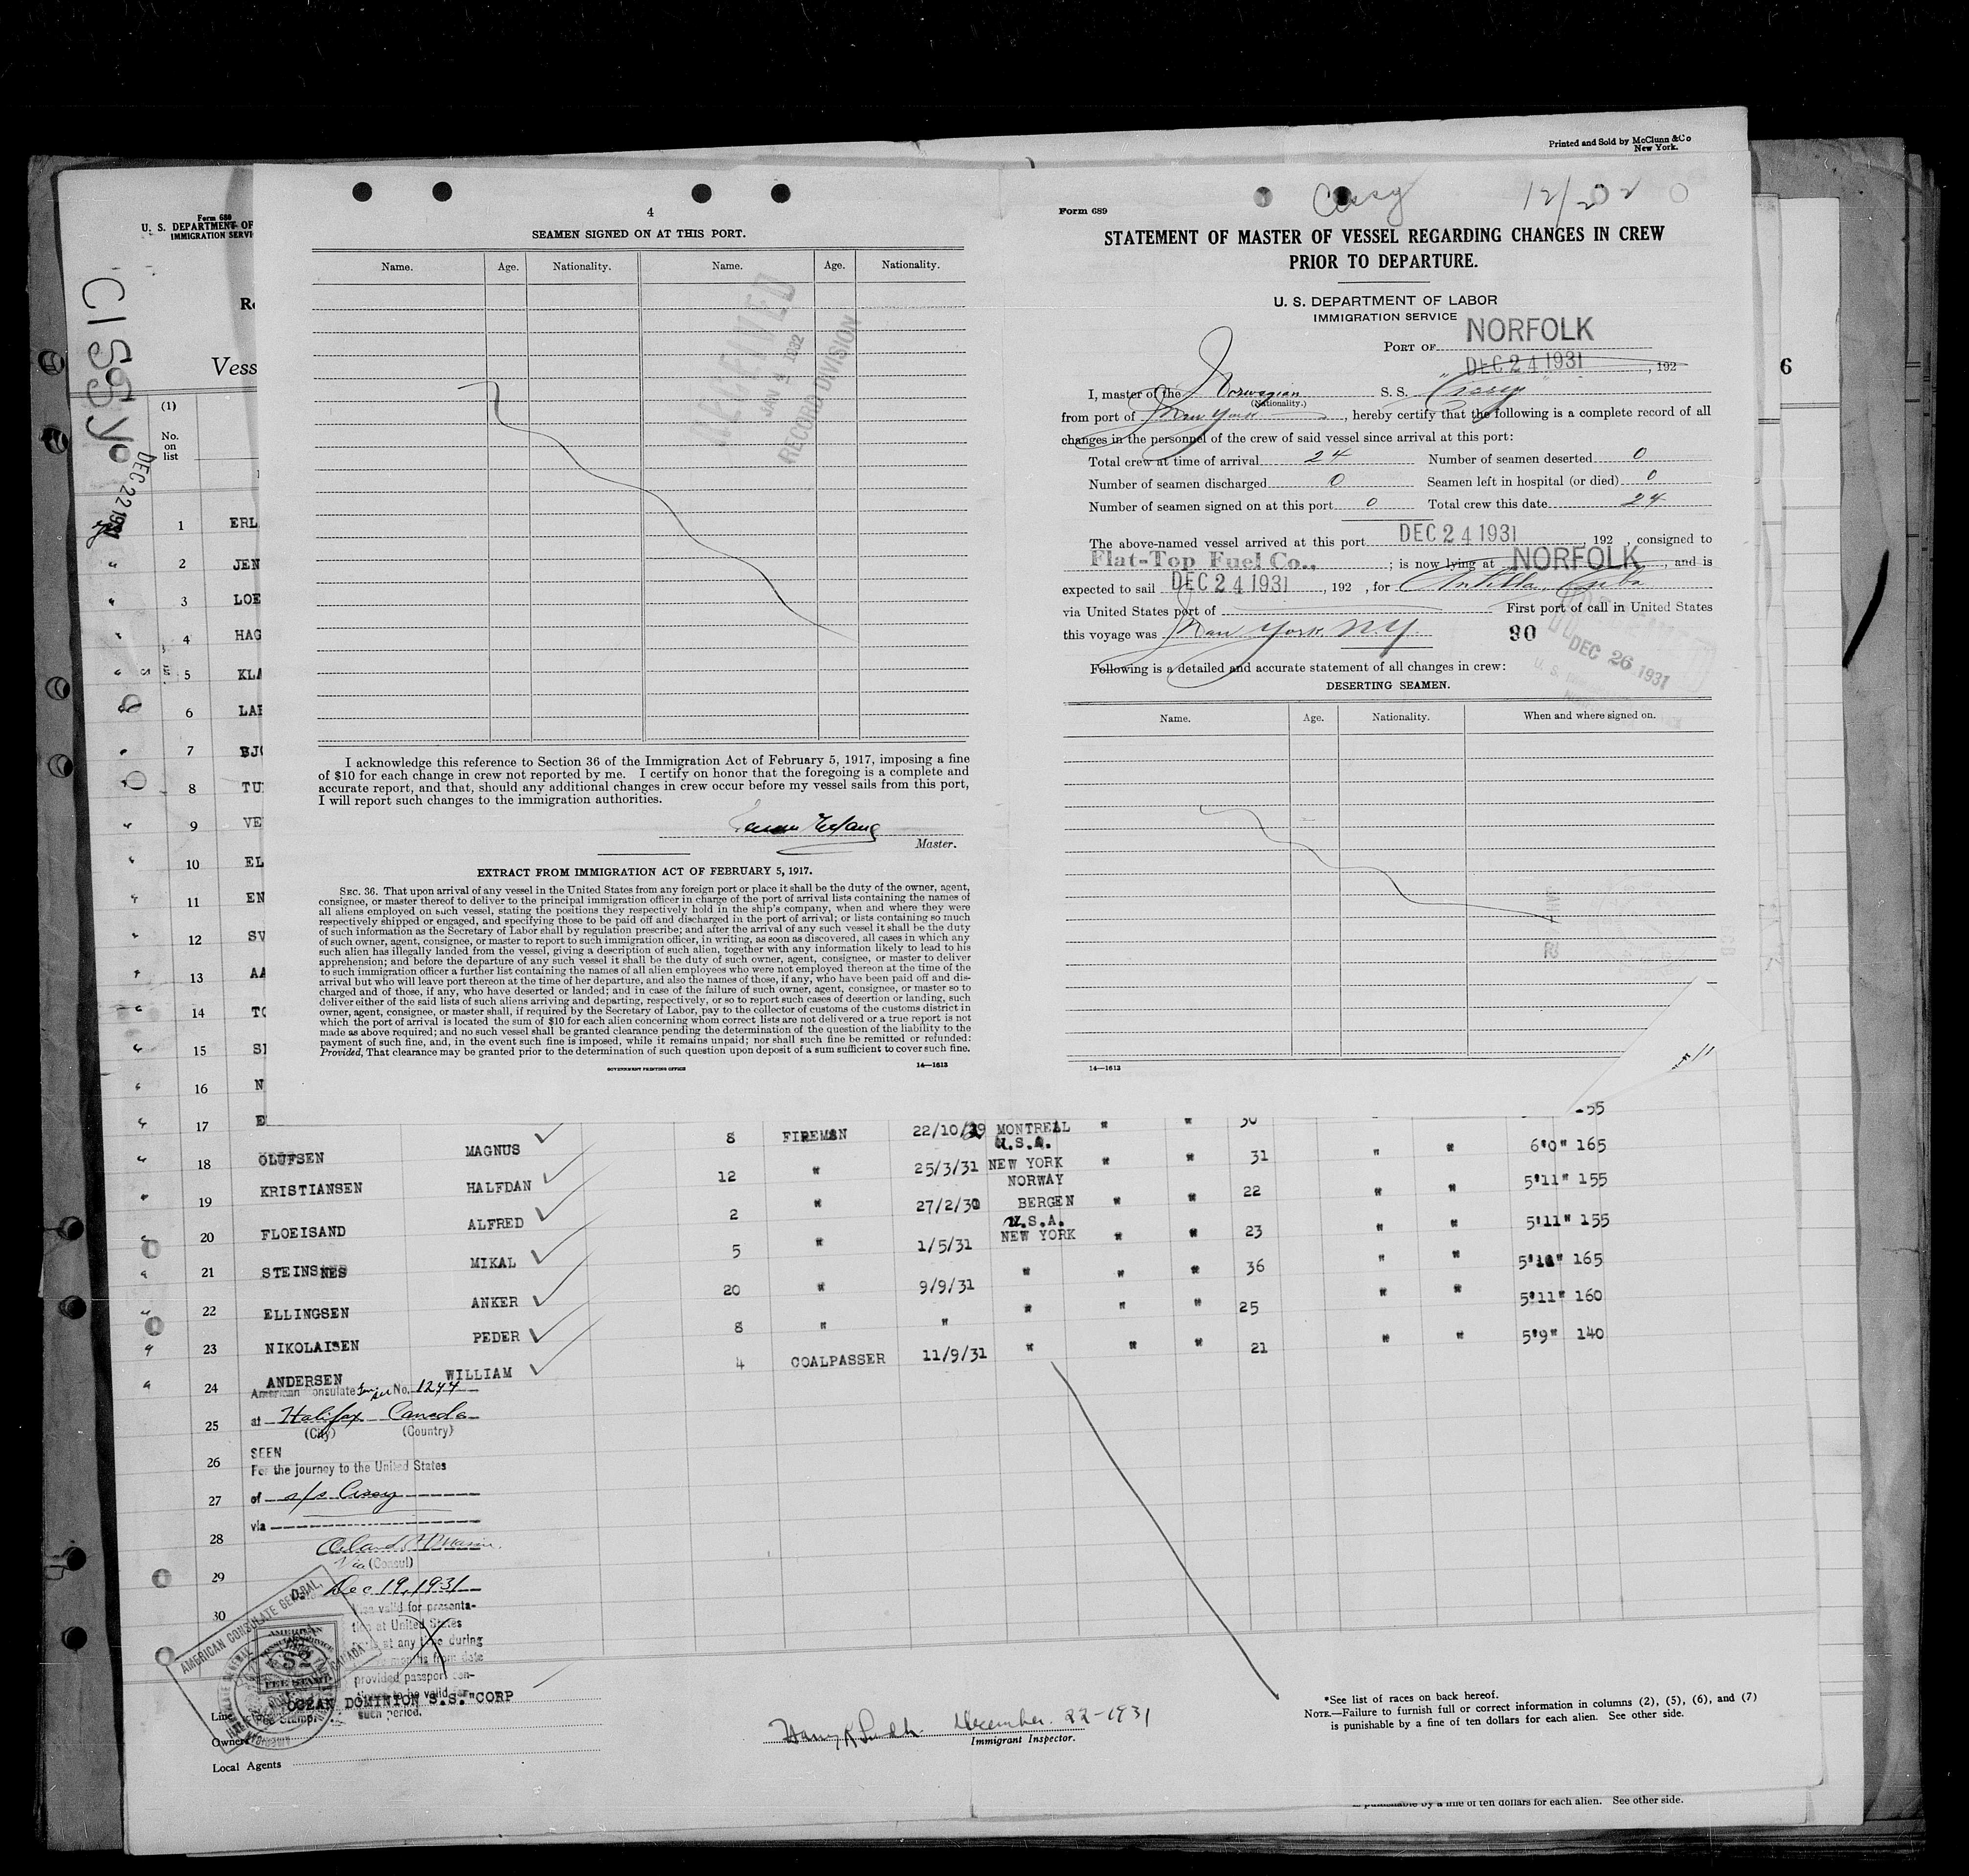 Printed and Sold by McClunn & Co
New York.
Form 689
U. S. DEPARTMENT OF
IMMIGRATION SERVI
CISSY
DEC 22 1931
Vess
(1)
No.
on
list
1 ERL
2 JEN
3 LOE
4 HAG
5 KLA
6 LAR
7 BJO
8 TU
9 VE
10 EL
11 EN
12 SV
13 AA
14 TO
15 SI
16 N
17 E
4
SEAMEN SIGNED ON AT THIS PORT.
Name. Age. Nationality. Name. Age. Nationality.
RECEIVED
JAN 2 1932
RECORD DIVISION
I acknowledge this reference to Section 36 of the Immigration Act of February 5, 1917, imposing a fine
of $10 for each change in crew not reported by me. I certify on honor that the foregoing is a complete and
accurate report, and that, should any additional changes in crew occur before my vessel sails from this port,
I will report such changes to the immigration authorities.
Master.
EXTRACT FROM IMMIGRATION ACT OF FEBRUARY 5, 1917.
SEC. 36. That upon arrival of any vessel in the United States from any foreign port or place it shall be the duty of the owner, agent,
consignee, or master thereof to deliver to the principal immigration officer in charge of the port of arrival lists containing the names of
all aliens employed on such vessel, stating the positions they respectively hold in the ship's company, when and where they were
respectively shipped or engaged, and specifying those to be paid off and discharged in the port of arrival; or lists containing so much
of such information as the Secretary of Labor shall by regulation prescribe; and after the arrival of any such vessel it shall be the duty
of such owner, agent, consignee, or master to report to such immigration officer, in writing, as soon as discovered, all cases in which any
such alien has illegally landed from the vessel, giving a description of such alien, together with any information likely to lead to his
apprehension; and before the departure of any such vessel it shall be the duty of such owner, agent, consignee, or master to deliver
to such immigration officer a further list containing the names of all alien employees who were not employed thereon at the time of the
arrival but who will leave port thereon at the time of her departure, and also the names of those, if any, who have been paid off and dis-
charged and of those, if any, who have deserted or landed; and in case of the failure of such owner, agent, consignee, or master so to
deliver either of the said lists of such aliens arriving and departing, respectively, or so to report such cases of desertion or landing, such
owner, agent, consignee, or master shall, if required by the Secretary of Labor, pay to the collector of customs of the customs district in
which the port of arrival is located the sum of $10 for each alien concerning whom correct lists are not delivered or a true report is not
made as above required; and no such vessel shall be granted clearance pending the determination of the question of the liability to the
payment of such fine, and, in the event such fine is imposed, while it remains unpaid; nor shall such fine be remitted or refunded:
Provided, That clearance may be granted prior to the determination of such question upon deposit of a sum sufficient to cover such fine.
GOVERNMENT PRINTING OFFICE 14—1613
Form 689
STATEMENT OF MASTER OF VESSEL REGARDING CHANGES IN CREW
PRIOR TO DEPARTURE.
U. S. DEPARTMENT OF LABOR
IMMIGRATION SERVICE
PORT OF NORFOLK
DEC 24 1931, 192
I, master of the Norwegian S. S. "Cissy"
(Nationality.)
from port of New York, hereby certify that the following is a complete record of all
changes in the personnel of the crew of said vessel since arrival at this port:
Total crew at time of arrival 24 Number of seamen deserted 0
Number of seamen discharged 0 Seamen left in hospital (or died) 0
Number of seamen signed on at this port 0 Total crew this date 24
The above-named vessel arrived at this port DEC 24 1931, 192 , consigned to
Flat-Top Fuel Co., ; is now lying at NORFOLK, and is
expected to sail DEC 24 1931, 192 , for Antilla, Cuba
via United States port of First port of call in United States
this voyage was New York. N.Y. 90
DEC 26 1931
Following is a detailed and accurate statement of all changes in crew:
DESERTING SEAMEN.
Name. Age. Nationality. When and where signed on.
14—1613
6
17 MAGNUS 8 FIREMAN 22/10/29 MONTREAL " " 30 155
18 OLUFSEN HALFDAN 12 " 25/3/31 U.S.A. NEW YORK " " 31 " " 6'0" 165
19 KRISTIANSEN ALFRED 2 " 27/2/30 NORWAY BERGEN " " 22 " " 5'11" 155
20 FLOEISAND MIKAL 5 " 1/5/31 U.S.A. NEW YORK " " 23 " " 5'11" 155
21 STEINSNES ANKER 20 " 9/9/31 " " " 36 " " 165
22 ELLINGSEN PEDER 8 " " " " " 25 " " 5'11" 160
23 NIKOLAISEN WILLIAM 4 COALPASSER 11/9/31 " " " 21 " " 5'9" 140
24 ANDERSEN
American Consulate No. 1244
25 at Halifax Canada
(City) (Country)
26 SEEN
For the journey to the United States
27 of s/s Cissy
via
28
(Consul)
29 Dec 19, 1931
30
AMERICAN CONSULATE GENERAL,
CANADA
AMERICAN
$2
FEE STAMP
valid for presenta-
tion at United States
at any time during
months from date
provided passport con-
tinues to be valid for
such period.
Line OCEAN DOMINION S.S. CORP
Owners
Local Agents
December 22-1931
Immigrant Inspector.
*See list of races on back hereof.
NOTE.—Failure to furnish full or correct information in columns (2), (5), (6), and (7)
is punishable by a fine of ten dollars for each alien. See other side.
is punishable by a fine of ten dollars for each alien. See other side.